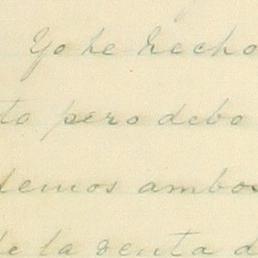 Yo he hecho
to pero debo
demos ambos
de la venta d